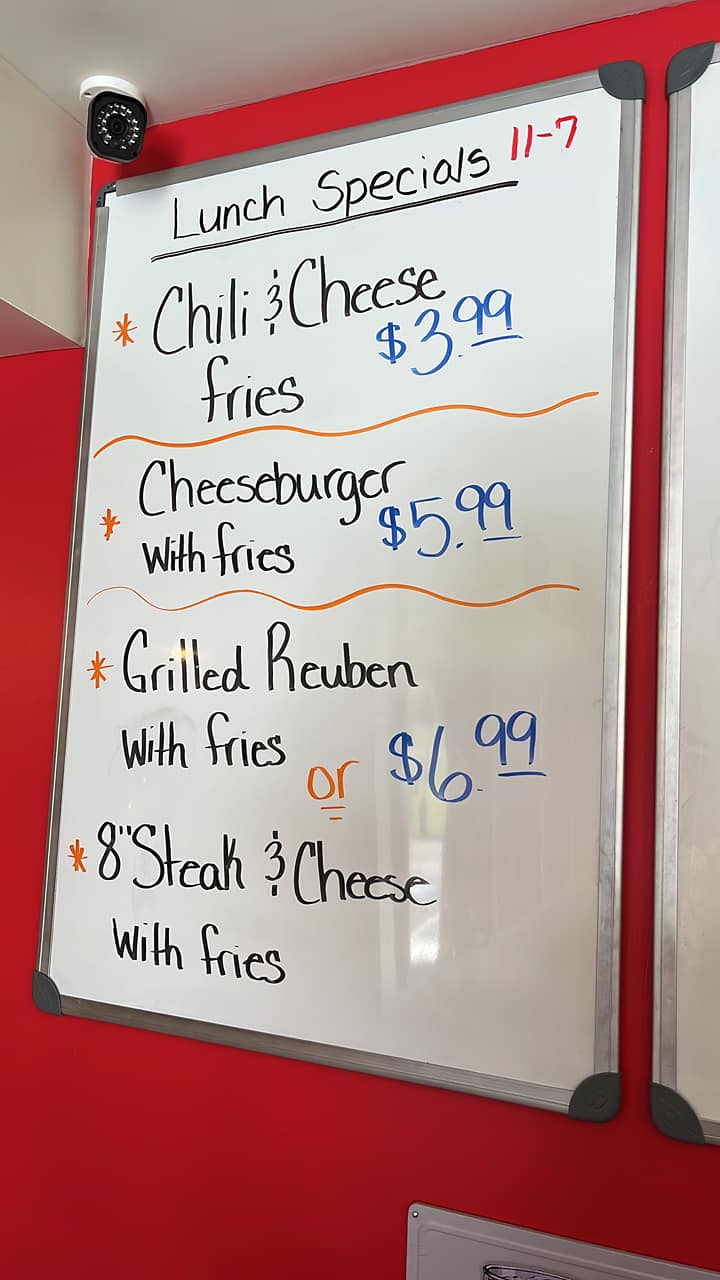 Lunch Specials 11-7
* Chili & Cheese
fries $3.99
* Cheeseburger
with fries $5.99
* Grilled Reuben
with fries or $6.99
* 8" Steak & Cheese
with fries